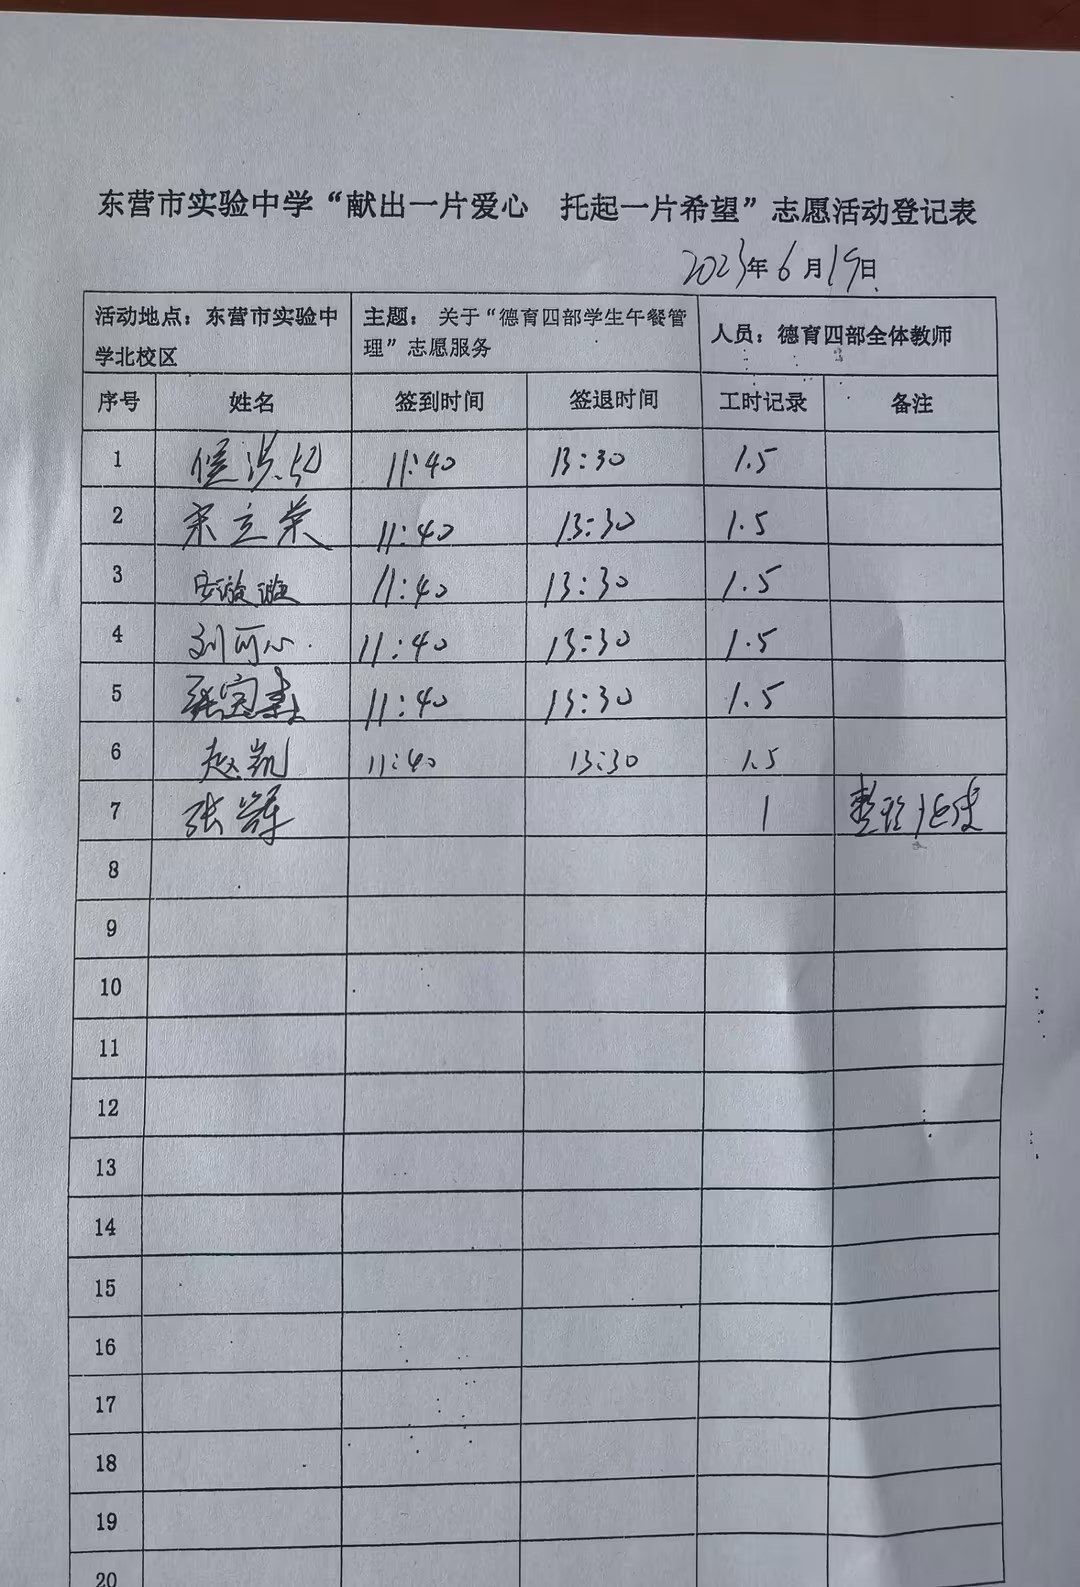 东营市实验中学“献出一片爱心 托起一片希望”志愿活动登记表
2023年6月19日
活动地点：东营市实验中学北校区 主题：关于“德育四部学生午餐管理”志愿服务 人员：德育四部全体教师
序号 姓名 签到时间 签退时间 工时记录 备注
1 11:40 13:30 1.5
2 宋立荣 11:40 13:30 1.5
3 11:40 13:30 1.5
4 刘可心 11:40 13:30 1.5
5 张 11:40 13:30 1.5
6 赵凯 11:40 13:30 1.5
7 张 1 整理
8
9
10
11
12
13
14
15
16
17
18
19
20